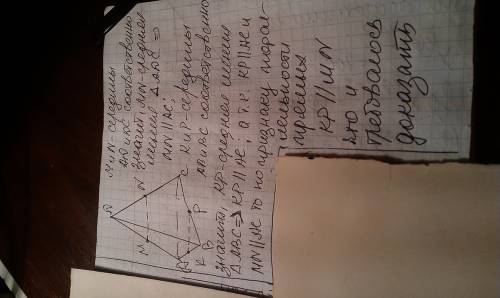 M и N-середины
AD и DC соответственно
значит, MN-средняя
линия △ADC ⇒
MN∥AC;
K и P-середины
AB и BC соответственно
значит, KP-средняя линия
△ABC ⇒ KP∥AC, а т.к. KP∥AC и
MN∥AC то по признаку парал-
лельности
прямых
KP∥MN
что и
требовалось
доказать
D
M
N
A
C
K
P
B